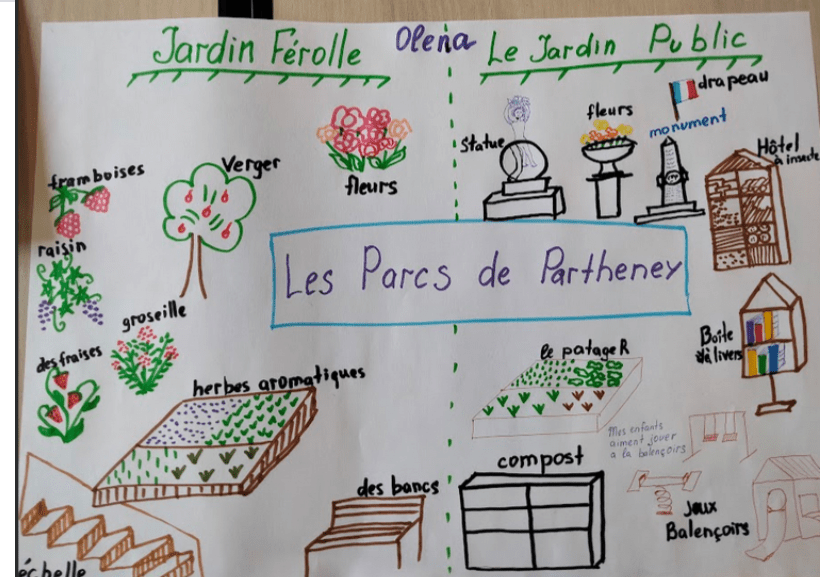 Jardin Férolle
Olena
Le Jardin Public
drapeau
fleurs
monument
Statue
Hôtel
à insecte
framboises
Verger
fleurs
raisin
Les Parcs de Partheney
groseille
des fraises
le patageR
Boîte
à livers
herbes aromatiques
Mes enfants
aiment jouer
a la balençoirs
compost
des bancs
Jeux
Balençoirs
échelle